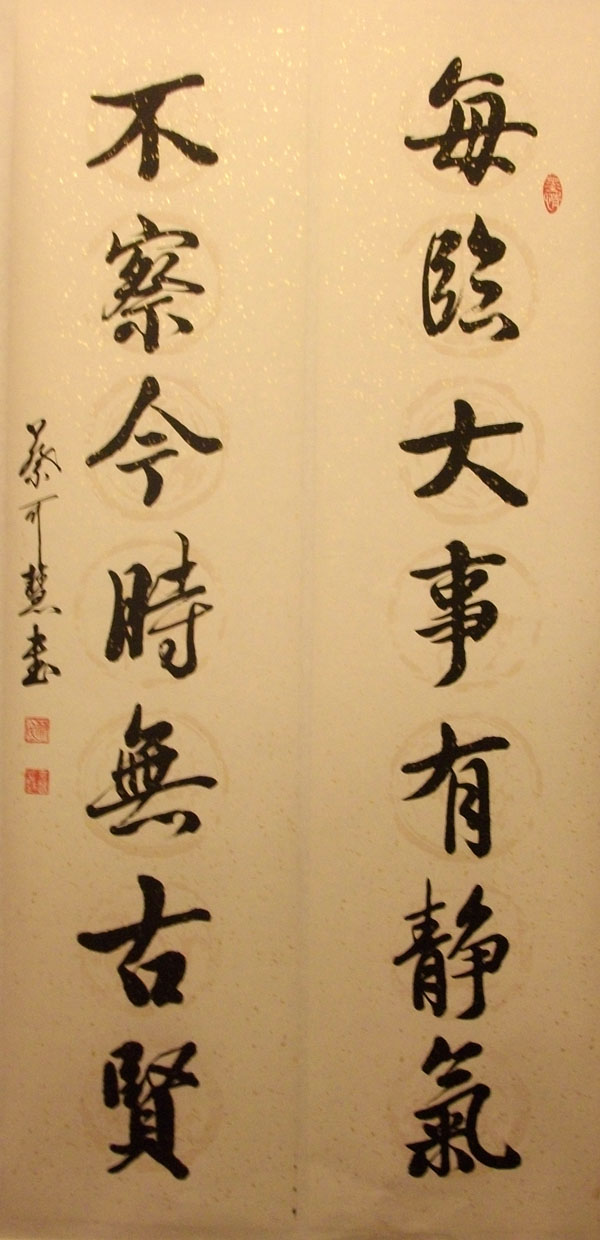 每臨大事有静氣
不察今時無古賢
蔡可慧書